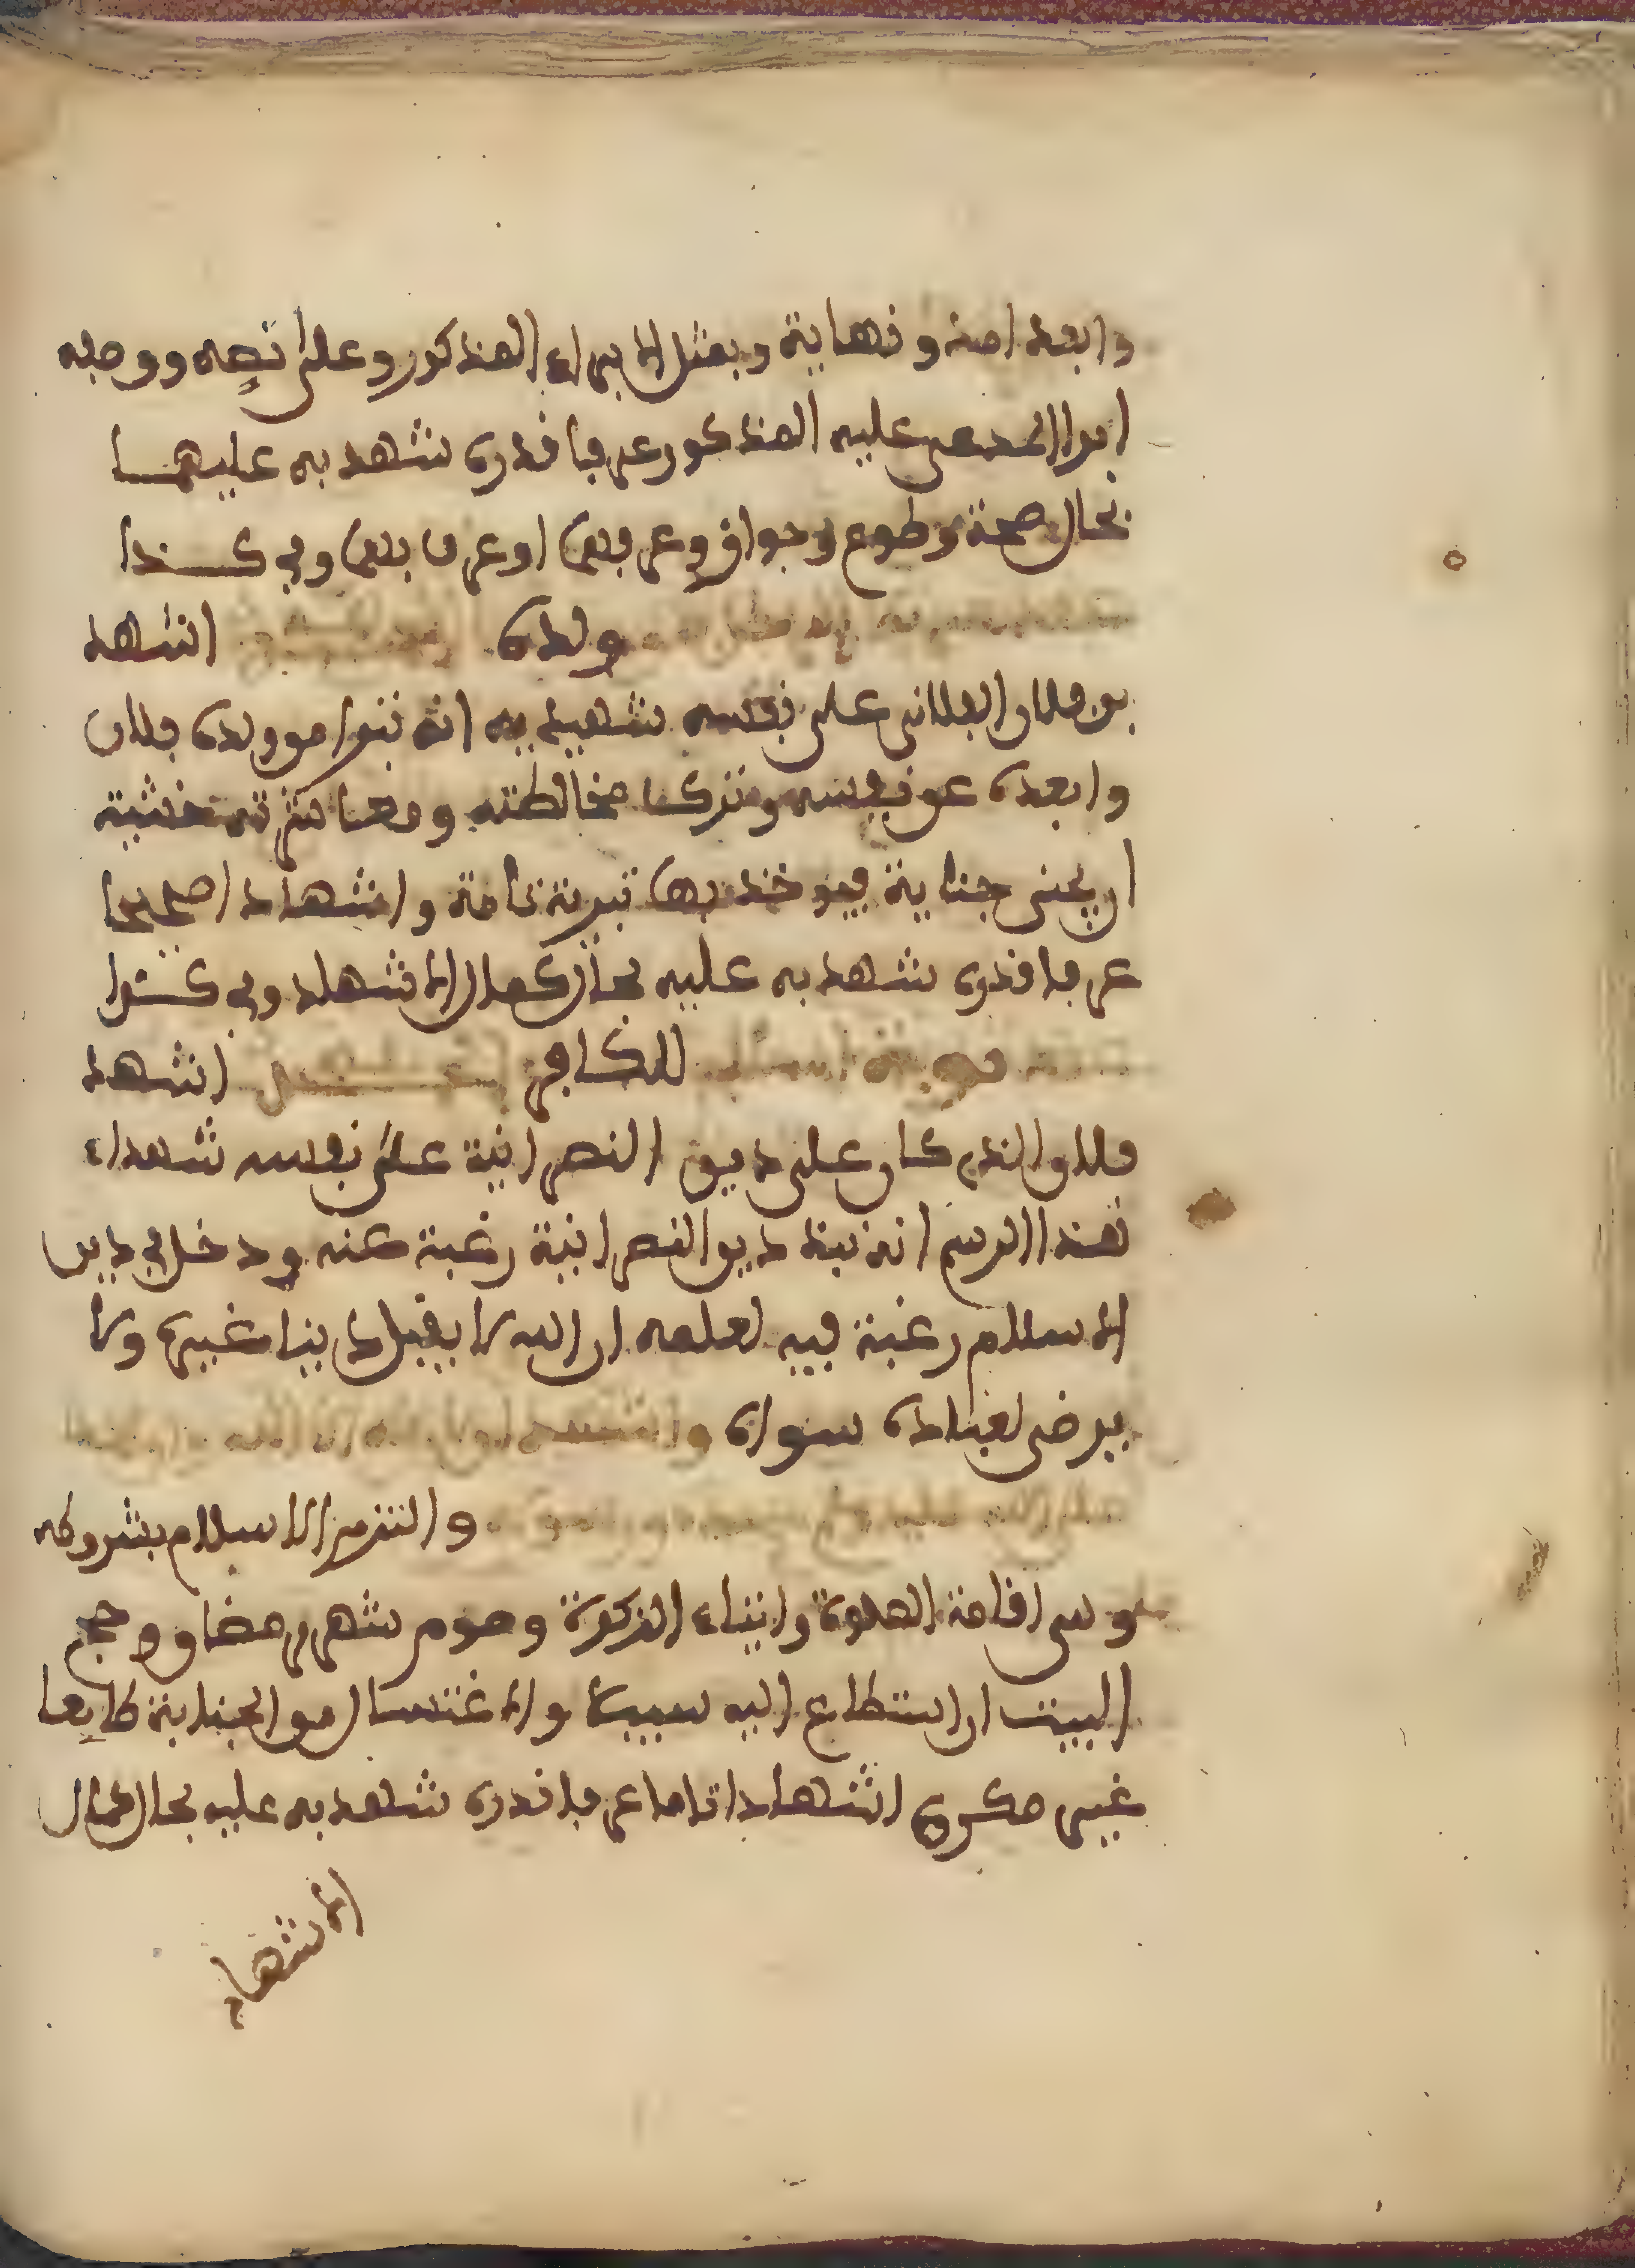 وابعد امد ونهاية وبمثل الابراء المذكور وعلى نصه ووصله
ابرا المدعى عليه المذكور عن ما قدره شهد به عليهما
بحال صحة وطوع وجواز وعرفهما او عرف بهما وفي كذا
ولده اشهد
بن فلان الفلاني على نفسه شهيديه انه تبرا من ولده فلان
وابعده عن نفسه وترك مخالطته ومعاشرته خشية
ان يجنى جناية فيوخذ بها تبرئة تامة واشهادا صحيحا
عن ما قدره شهد به عليه بحال كمال الاشهاد وفي كذا
للكافر اشهد
فلان الذي كان على دين النصرانية على نفسه شهداء
هذا الرسم انه نبذ دين النصرانية رغبة عنه ودخل في دين
الاسلام رغبة فيه لعلمه ان الله لا يقبل دينا غيره ولا
يرضى لعباده سواه
والتزم الاسلام بشروطه
وسى اقامة الصلوة وايتاء الزكوة وصوم شهر رمضان وحج
البيت ان استطاع اليه سبيلا والاغتسال من الجنابة طايعا
غير مكره اشهادا تاما عن ما قدره شهد به عليه بحال كمال
الاشهاد